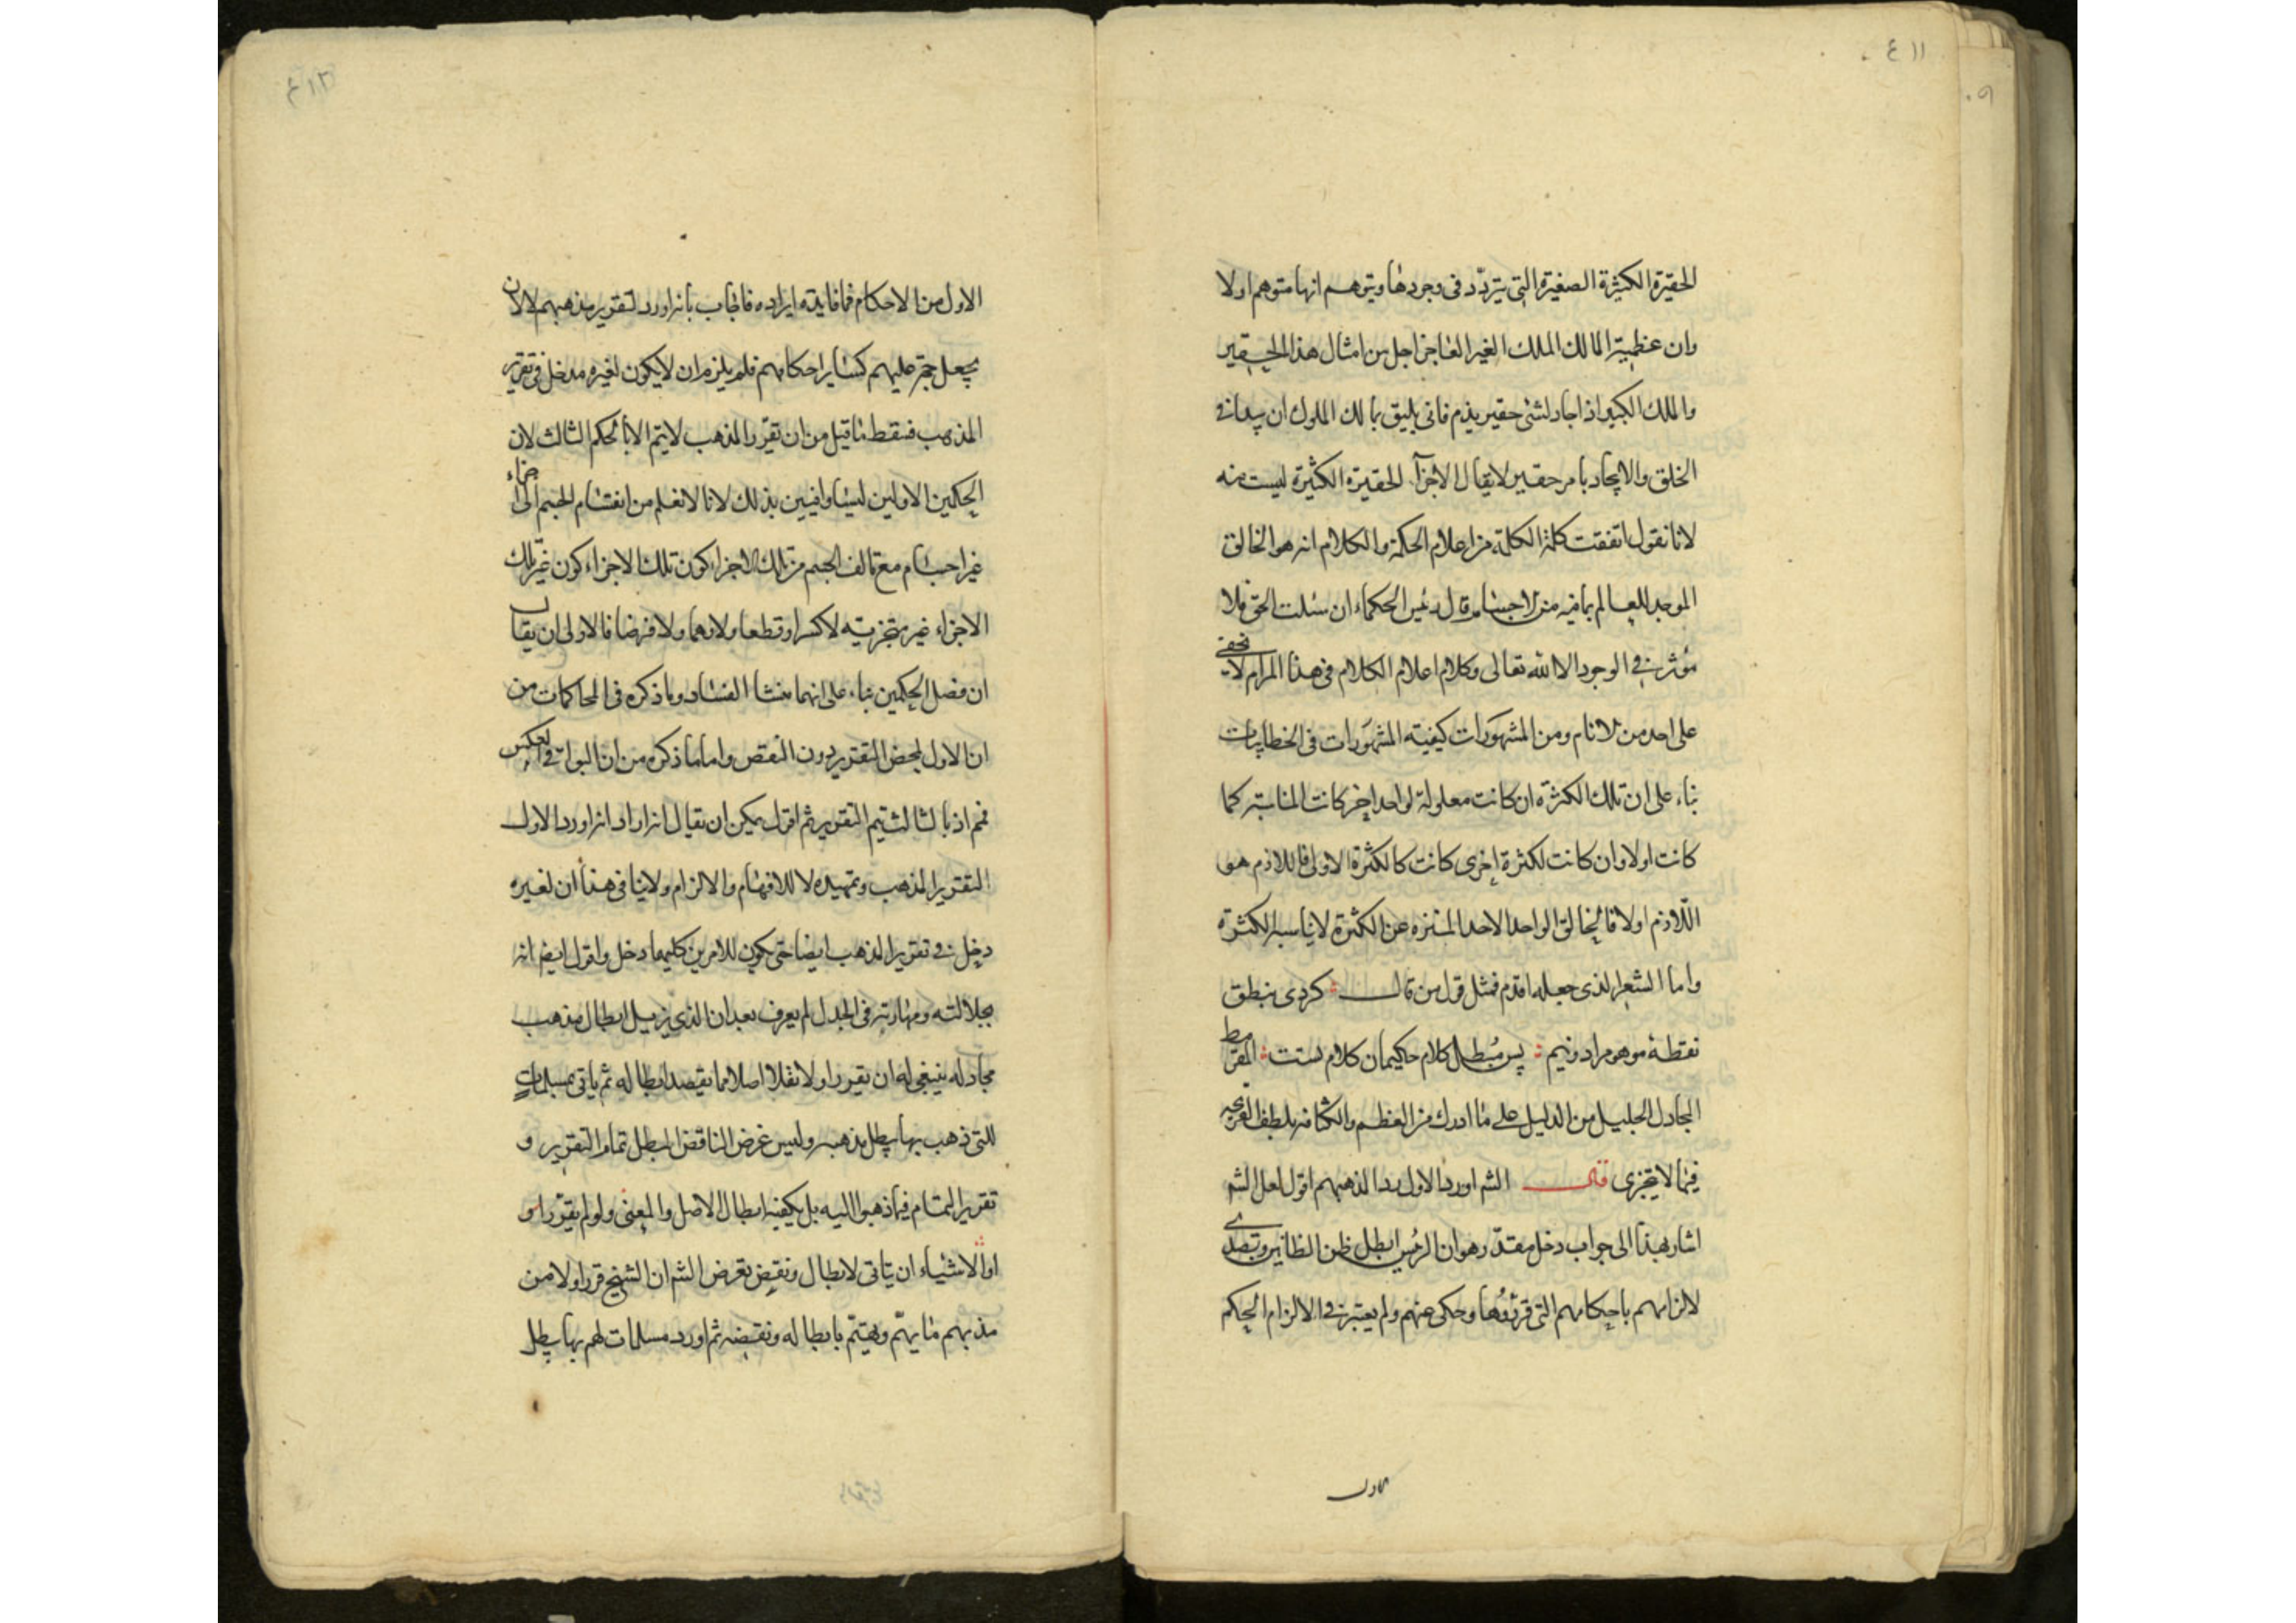 ٤١١
٩٠
الحقيرة الكثيرة الصغيرة التى يتردّد فى وجودها ويتوهم انها متوهم اولا
وان عظمة المالك الملك الغير العاجز اجل من امثال هذا الحقير
والملك الكبير اذا جاد لشئ حقير يذم فانى يليق بمالك الملوك ان يبدا فى
الخلق والايجاد بامر حقير لايقال الاجزآء الحقيرة الكثيرة ليست منه
لانا نقول اتفقت كلمة الكلمة من اعلام الحكمة والكلام انه هو الخالق
الموجد للعالم بما فيه من الاجسام وقال رئيس الحكماء ان سئلت الحق فلا
مؤثر فى الوجود الا الله تعالى وكلام اعلام الكلام فى هذا المرام لا يخفى
على احد من الانام ومن المشهورات كيفية المشهورات فى الخطابيات
بناء على ان تلك الكثرة ان كانت معلولة لواحد اخر كانت المناسبة كما
كانت اولا وان كانت لكثرة اخرى كانت كالكثرة الاولى فاللازم هو
اللّازم اولا فالخالق الواحد الاحد المنزه عن الكثرة لايناسبه الكثرة
واما الشعر الذى جعله اقدم فمثل قول من قال كردى بنطق
نقطهٔ موهوم را دونيم پس مُبطل كلام حكيمان كلام تست
المجادل الجليل من الدليل على ما ادرك من العظم والكثافة بلطف
فيما لا يتجزى قال الشم اورد الاول ردا لمذهبهم اقول لعل الشم
اشار بهذا الى جواب دخل مقدّر وهو ان الرئيس ابطل ظن الظانين وتصدى
لالزامهم باحكامهم التى قررها وحكى عنهم ولم يعتبر فى الالزام الحكم
الاول
٤١٢
الاول من الاحكام فما فايدة ايراده فاجاب بانه اورد لتقرير مذهبهم لا لان
يجعل حجة عليهم كساير احكامهم فلم يلزم ان لايكون لغيره مدخل فى تقرير
المذهب فسقط ما قيل من ان تقرر المذهب لايتم الا بالحكم الثالث لان
الحكمين الاولين ليسا وافيين بذلك لانا لا نعلم من انقسام الجسم الى اجزاء
غير اجسام مع تالف الجسم من تلك الاجزاء كون تلك الاجزاء كون غير تلك
الاجزاء غير متجزية لا كسرا وقطعا ولا وهما ولا فرضا فالاولى ان يقال
ان فصل الحكمين بناء على انهما منشا الفساد وما ذكره فى المحاكمات من
ان الاول لمحض التقرير دون النقص واما ما ذكره من ان البواقى فى العكس
فمم اذ بالثالث يتم التقرير ثم اقول يمكن ان يقال انه اراد انه اورد الاول
لتقرير المذهب وتمهيده لا للافهام والالزام ولاينافى هذا ان لغيره
دخل فى تقرير المذهب ايضا حتى يكون للامرين كليهما دخل واقول ايضا انه
بجلالته ومهارته فى الجدل لم يعرف بعد ان الذى يزيل ابطال مذهب
مجادله ينبغى له ان يقرر اولا نقلا اصلا مما يقصد ابطاله ثم ياتى بمسلمات
للتى ذهب بها يبطل مذهبه وليس غرض الناقض المبطل تمام التقرير و
تقرير التمام فيما ذهبوا اليه بل يكفيه ابطال الاصل والمعنى ولو لم يقرر او
الاشياء ان يتاتى لابطال ونقض بغرض الشم ان الشيخ قرر اولا من
مذهبهم ما يهمّ ويهتمّ بابطاله ونقضه ثم اورد مسلمات لهم بها يبطل